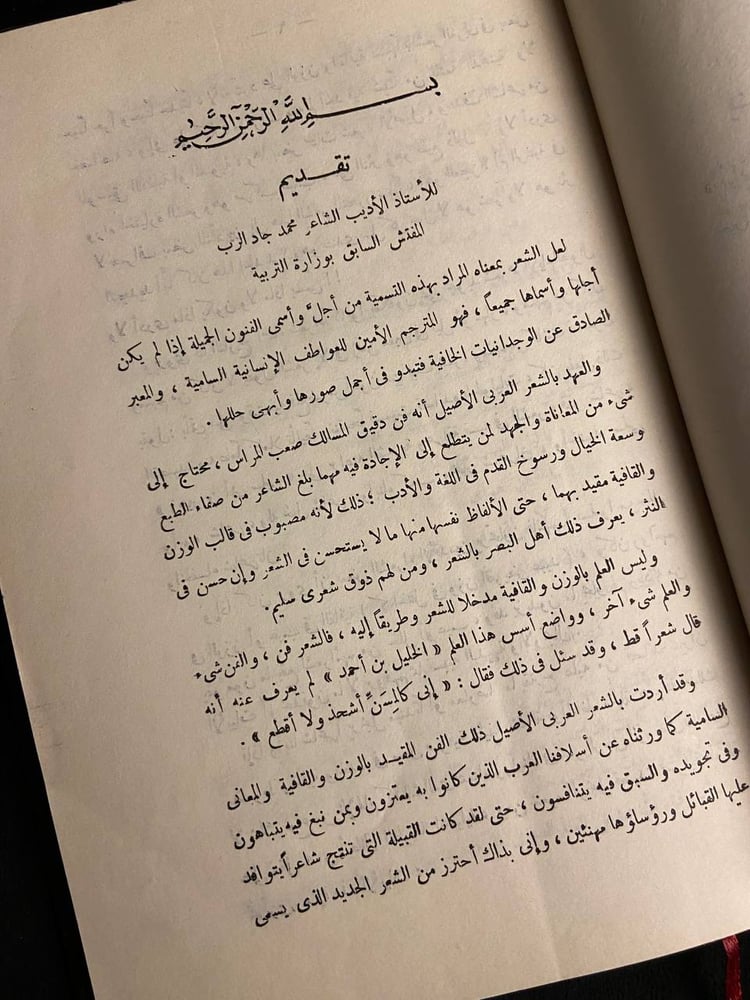 بسم اللَّه الرَّحْمن الرَّحيم
تقديم
للأستاذ الأديب الشاعر محمد جاد الرب
المفتش السابق بوزارة التربية
لعل الشعر بمعناه المراد بهذه التسمية من أجلّ وأسمى الفنون الجميلة إذا لم يكن
أجلها وأسماها جميعاً ، فهو المترجم الأمين للعواطف الإنسانية السامية ، والمعبر
الصادق عن الوجدانيات الخافية فتبدو فى أجمل صورها وأبهى حللها .
والعهد بالشعر العربى الأصيل أنه فن دقيق المسالك صعب المراس ، محتاج إلى
شىء من المعاناة والجهد لمن يتطلع إلى الإجادة فيه مهما بلغ الشاعر من صفاء الطبع
وسعة الخيال ورسوخ القدم فى اللغة والأدب ؛ ذلك لأنه مصبوب فى قالب الوزن
والقافية مقيد بهما ، حتى الألفاظ نفسها منها ما لا يستحسن فى الشعر وإن حسن فى
النثر ، يعرف ذلك أهل البصر بالشعر ، ومن لهم ذوق شعرى سليم .
وليس العلم بالوزن والقافية مدخلا للشعر وطريقاً إليه ، فالشعر فن ، والفن شىء
والعلم شىء آخر ، وواضع أسس هذا العلم « الخليل بن أحمد » لم يعرف عنه أنه
قال شعراً قط ، وقد سئل فى ذلك فقال : « إنى كالمِسَنِّ أشحذ ولا أقطع » .
وقد أردت بالشعر العربى الأصيل ذلك الفن المقيد بالوزن والقافية والمعانى
السامية كما ورثناه عن أسلافنا العرب الذين كانوا به يعتزون وبمن نبغ فيه يتباهون
وفى تجويده والسبق فيه يتنافسون ، حتى لقد كانت القبيلة التى تنتج شاعراً يتوافد
عليها القبائل ورؤساؤها مهنئين ، وإنى بذاك أحترز من الشعر الجديد الذى يسمى